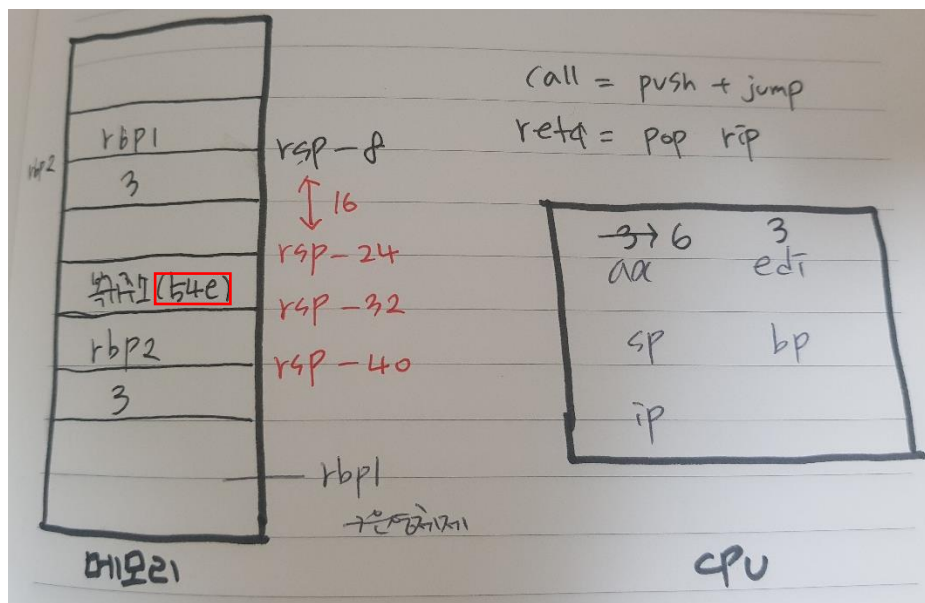 call = push + jump
reta = pop rip
rbp1
rsp-8
rbp2
3
16
rsp-24
복귀주소 (b4e)
rsp-32
rbp2
rsp-40
3
rbp1
운영체제
메모리
3→6
3
ax
edi
sp
bp
ip
CPU